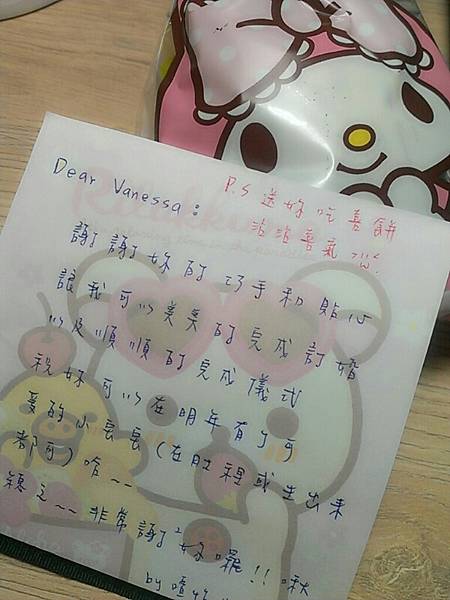 Dear Vanessa:
P.S 送妳吃喜餅
沾沾喜氣
謝謝妳的巧手和貼心
讓我可以美美的完成訂婚
以及順順的完成儀式
祝妳可以在明年有了可
愛的小寶寶(在肚裡或生出來
都可)哈~~
總之~~非常謝謝妳喔!!啾
by